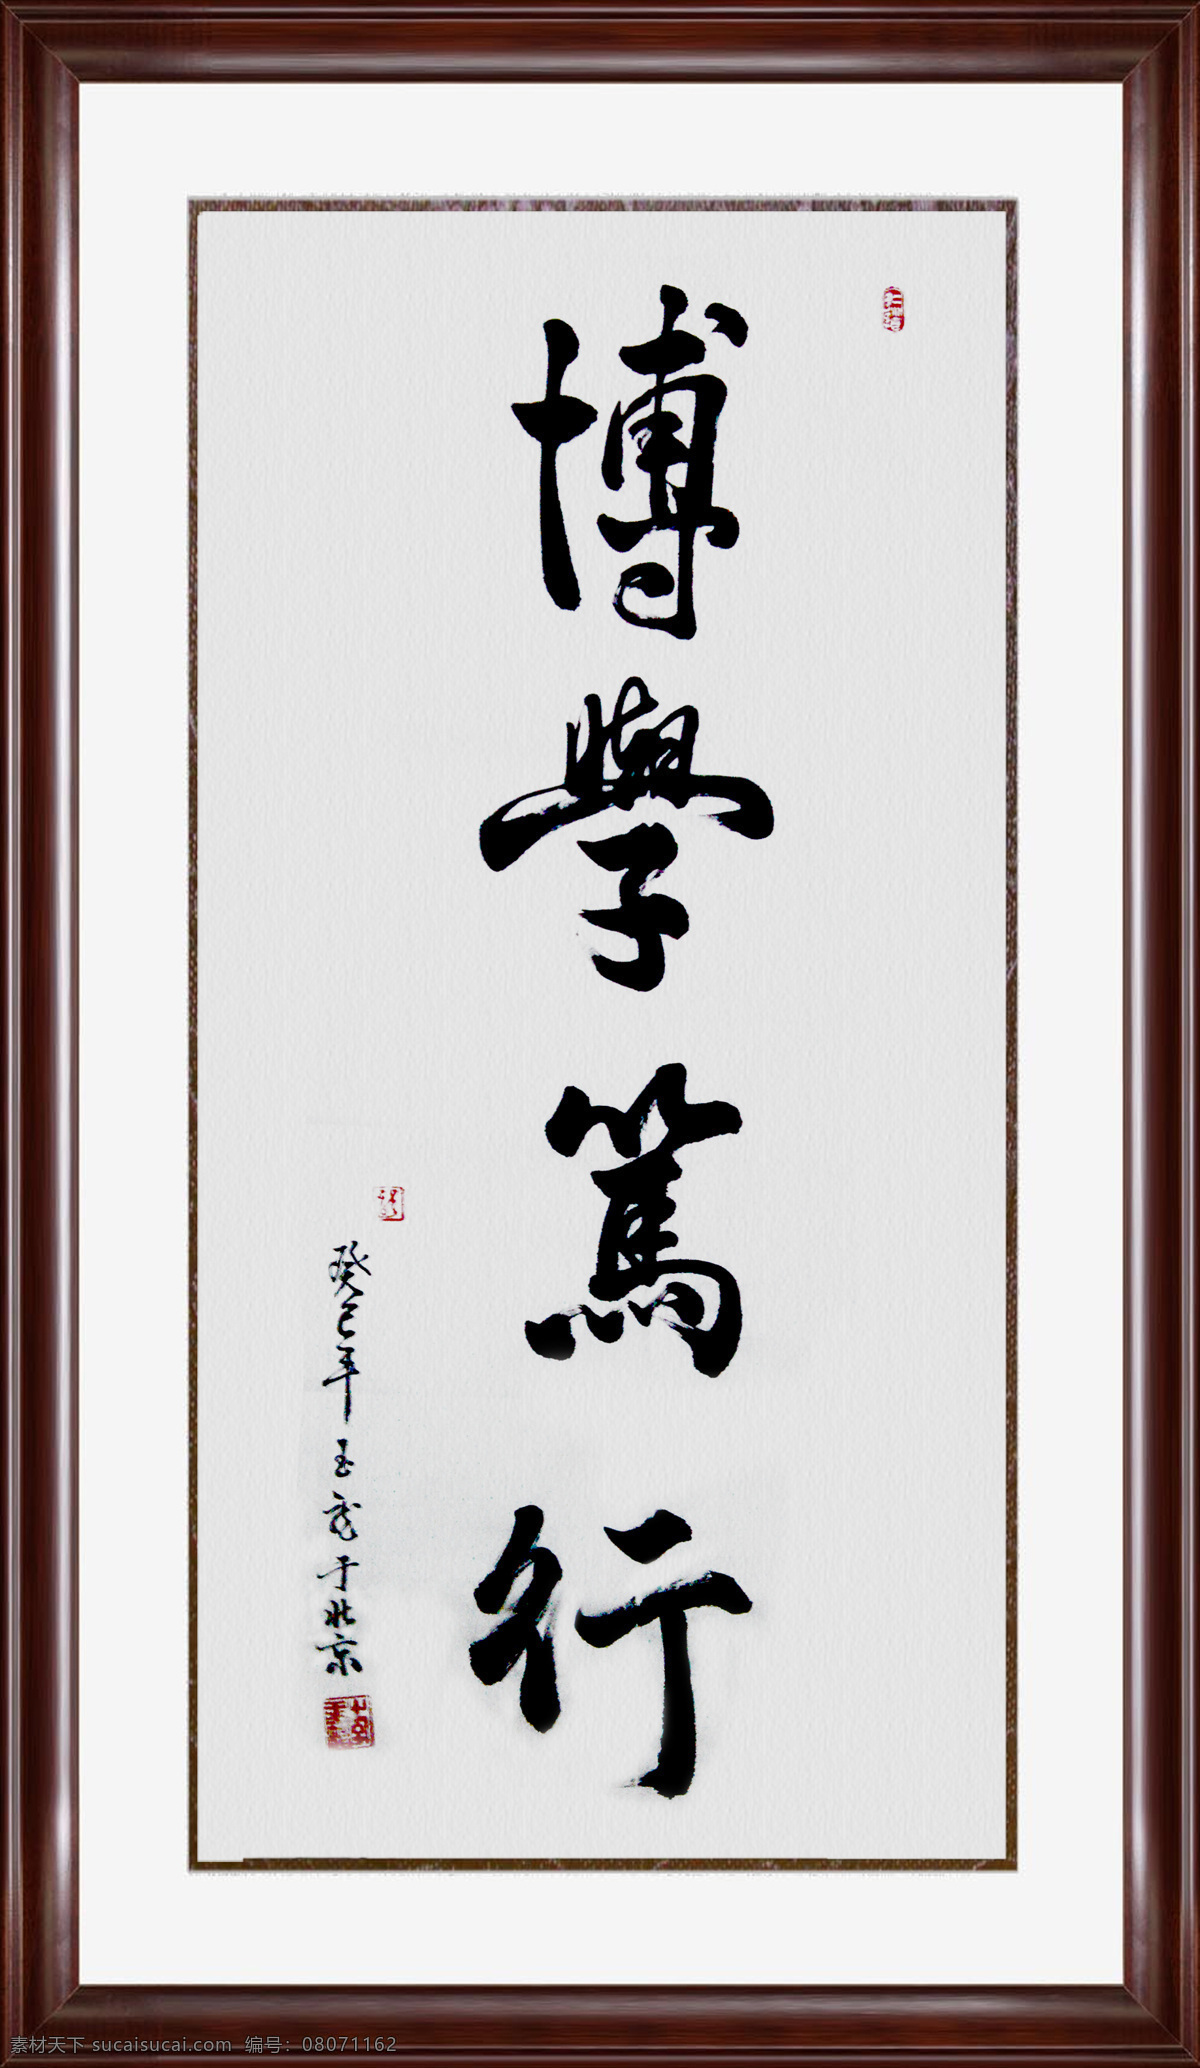 博學篤行
癸巳年 玉成于北京
素材天下 sucaisucai.com 编号：08071162